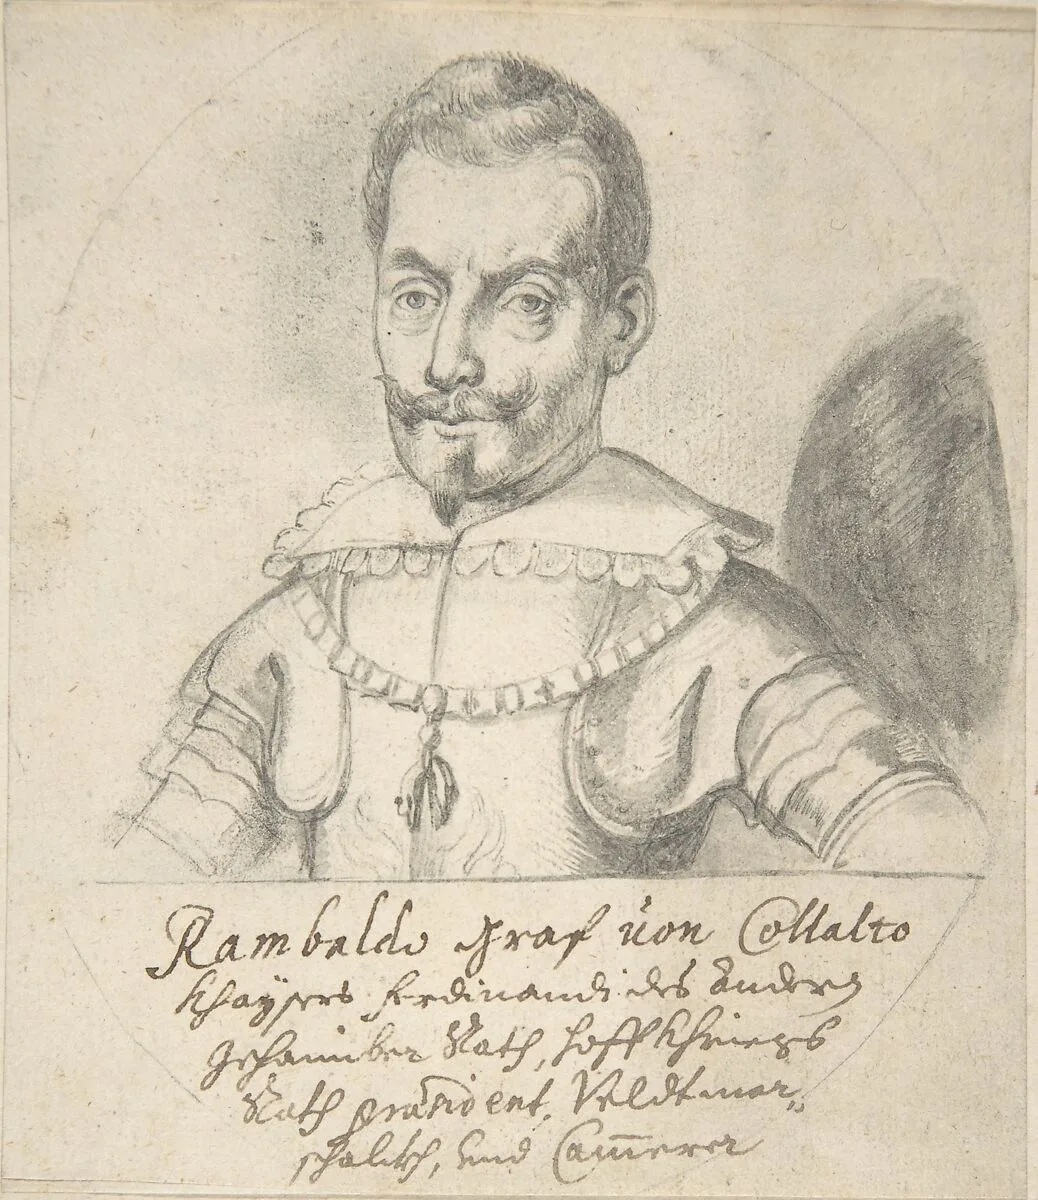 Rambaldo Graf von Collalto
Khaÿsers Ferdinandi des Andern
gehaimber Rath, hoffKhriegs
Rath præsident, Veldtmar„
schalkh, und Cam̄erer